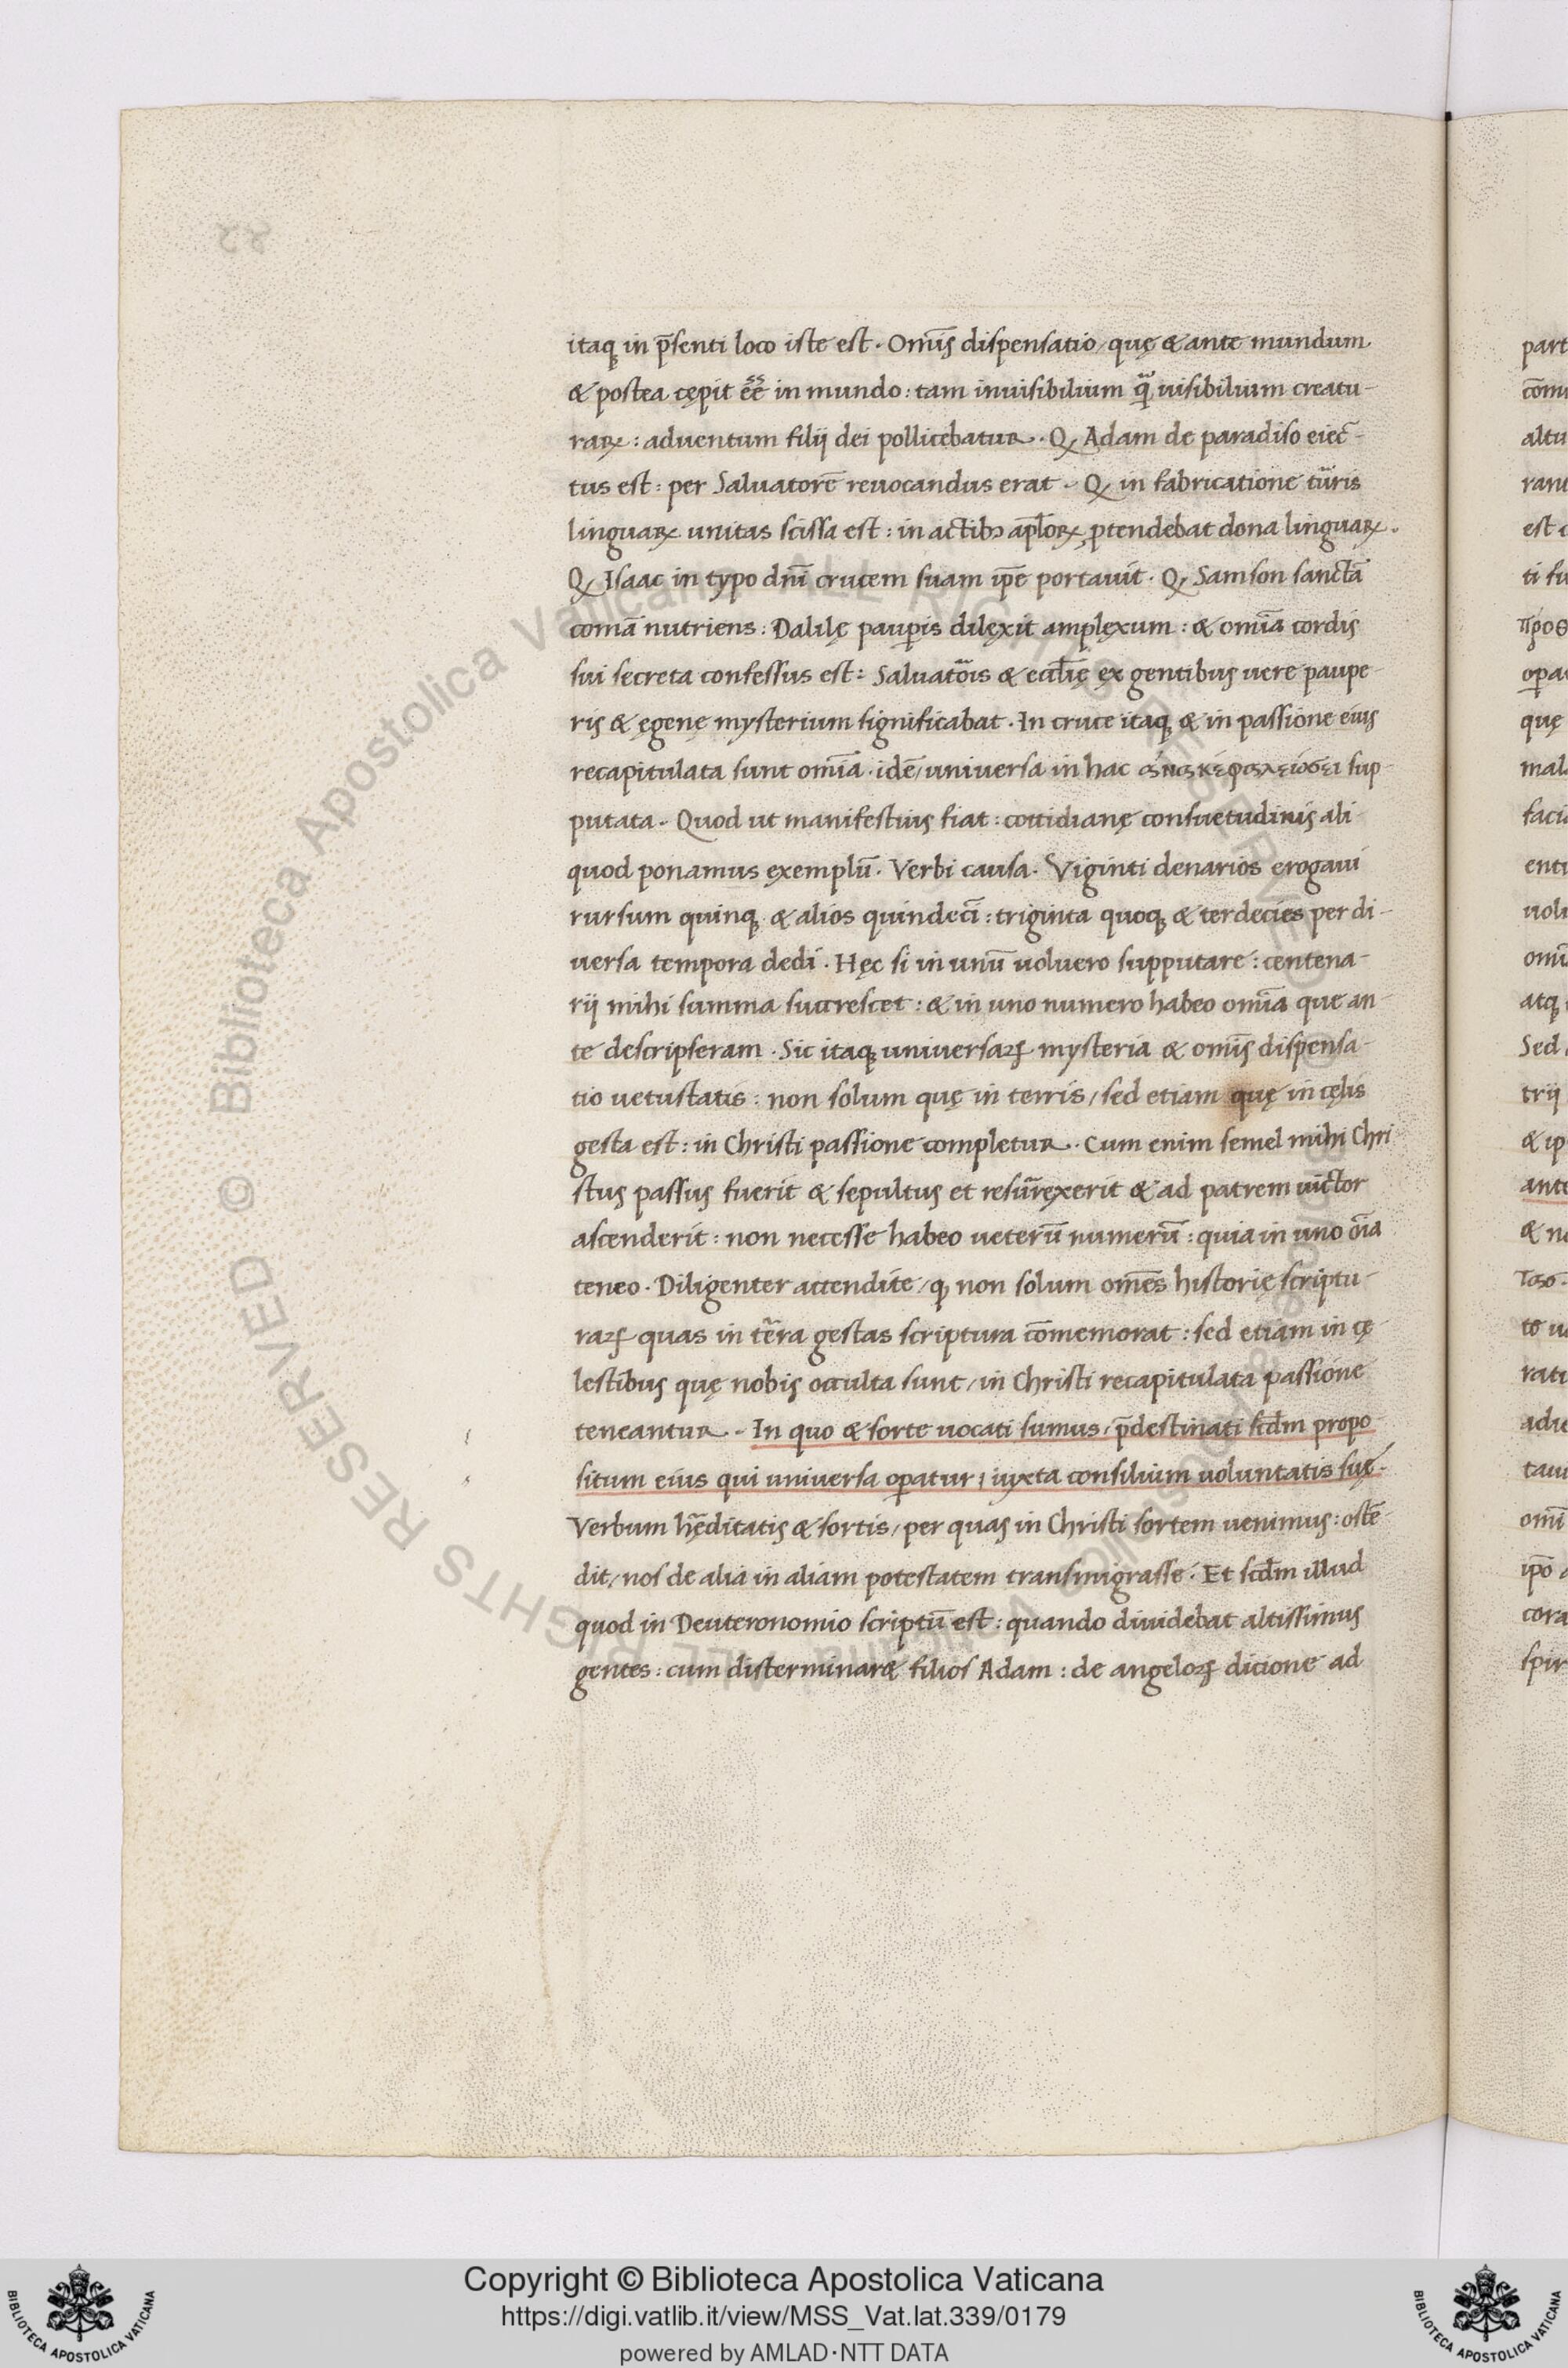 itaq in p̄senti loco iste est. Om̄is dispensatio, quę & ante mundum
& postea cępit ee̅ in mundo: tam inuisibilium q̄ uisibilium creatu-
raꝝ: aduentum filij dei pollicebatur. Q, Adam de paradiso eiec-
tus est: per Saluatorē reuocandus erat. Q, in fabricatione turris
linguaꝝ unitas scissa est: in actibꝫ apl̄oꝝ ꝓtendebat dona linguaꝝ.
Q, Isaac in typo dn̄i crucem suam ip̄e portauit. Q, Samson sanctā
comā nutriens: Dalilę paup̱is dilęxit amplęxum: & om̄ia cordis
sui secreta confessus est: Saluatōis & eccl̄ię ęx gentibus uere paupe-
ris & ęgenę mysterium significabat. In cruce itaq & in passione eius
recapitulata sunt om̄ia. idē, uniuersa in hac ἀνακεφαλειώσει sup-
putata. Quod ut manifestius fiat: cottidianę consuetudinis ali-
quod ponamus ęxemplū. Verbi causa. Viginti denarios erogaui
rursum quinq & alios quindecī: triginta quoq & terdecies per di-
uersa tempora dedi. Hęc si in unū uoluero supputare: centena-
rij mihi summa succrescet: & in uno numero habeo om̄ia que an-
te descripseram. Sic itaq uniuersaꝝ mysteria & om̄is dispensa-
tio uetustatis: non solum quę in terris, sed etiam quę in cęlis
gesta est: in Christi passione completur. Cum enim semel mihi Chri
stus passus fuerit & sepultus et resurręxerit & ad patrem uictor
ascenderit: non necesse habeo ueterū numerū: quia in uno oīa
teneo. Diligenter attendite, q, non solum om̄es historię scriptu-
raꝝ quas in tērra gestas scriptura cōmemorat: sed etiam in cę-
lestibus quę nobis occulta sunt, in Christi recapitulata passione
teneantur. In quo & sorte uocati sumus, p̄destinati scd̄m propo-
situm eius qui uniuersa op̱atur, iuxta consilium uoluntatis suę.
Verbum hęreditatis & sortis, per quas in Christi sortem uenimus: ostē
dit, nos de alia in aliam potestatem transmigrasse. Et scd̄m illud
quod in Deuteronomio scriptū est: quando diuidebat altissimus
gentes: cum disterminaret filios Adam: de angeloꝝ dicione ad
part
altu
rant
est
ti fu
quę
mal
facia
uolu
atq
Sed
trij
& ip
ante
& n
to u
ratu
adue
tau
cora
spir
© Biblioteca Apostolica Vaticana ALL RIGHTS RESERVED
Copyright © Biblioteca Apostolica Vaticana
https://digi.vatlib.it/view/MSS_Vat.lat.339/0179
powered by AMLAD·NTT DATA
BIBLIOTECA APOSTOLICA VATICANA
BIBLIOTECA APOSTOLICA VATICANA